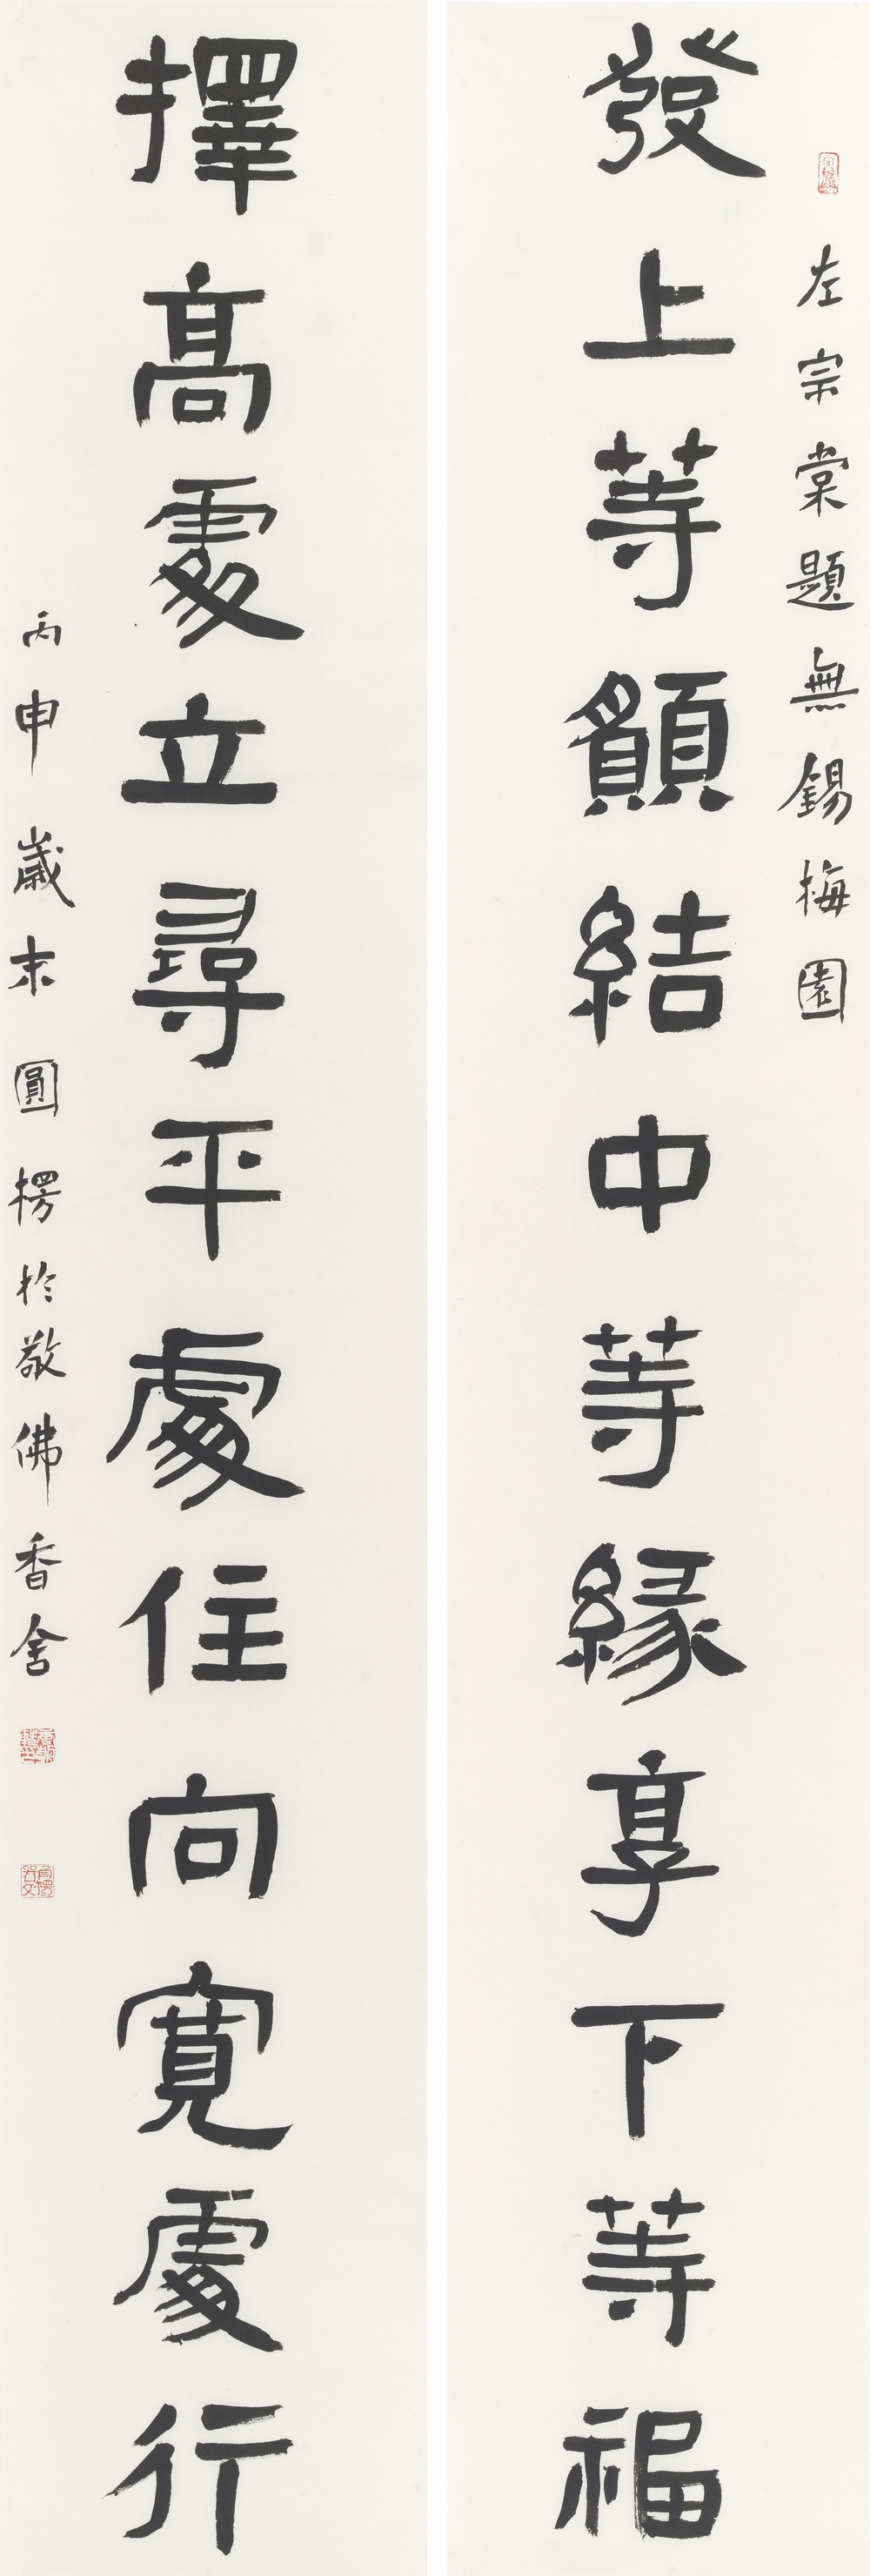 左宗棠題無錫梅園
發上等願結中等緣享下等福
擇高處立尋平處住向寬處行
丙申歲末圓楞於敬佛香舍